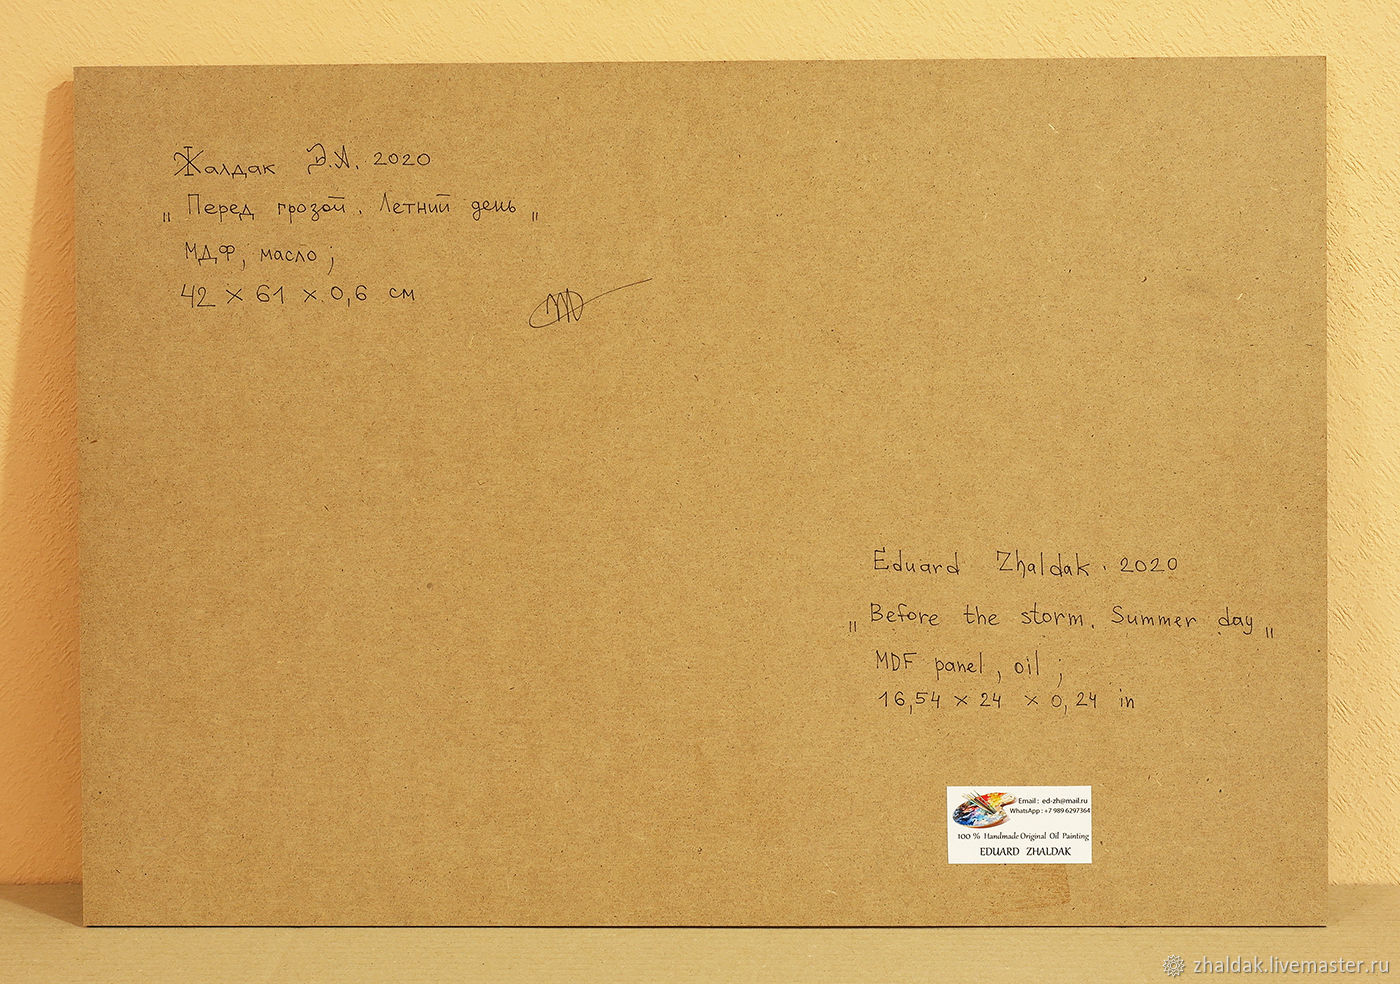 Жалдак Э.А. 2020
"Перед грозой. Летний день"
МДФ, масло;
42 × 61 × 0,6 см
Eduard Zhaldak. 2020
"Before the storm. Summer day"
MDF panel, oil;
16,54 × 24 × 0,24 in
Email: ed-zh@mail.ru
WhatsApp: +7 989 6297364
100 % Handmade Original Oil Painting
EDUARD ZHALDAK
zhaldak.livemaster.ru